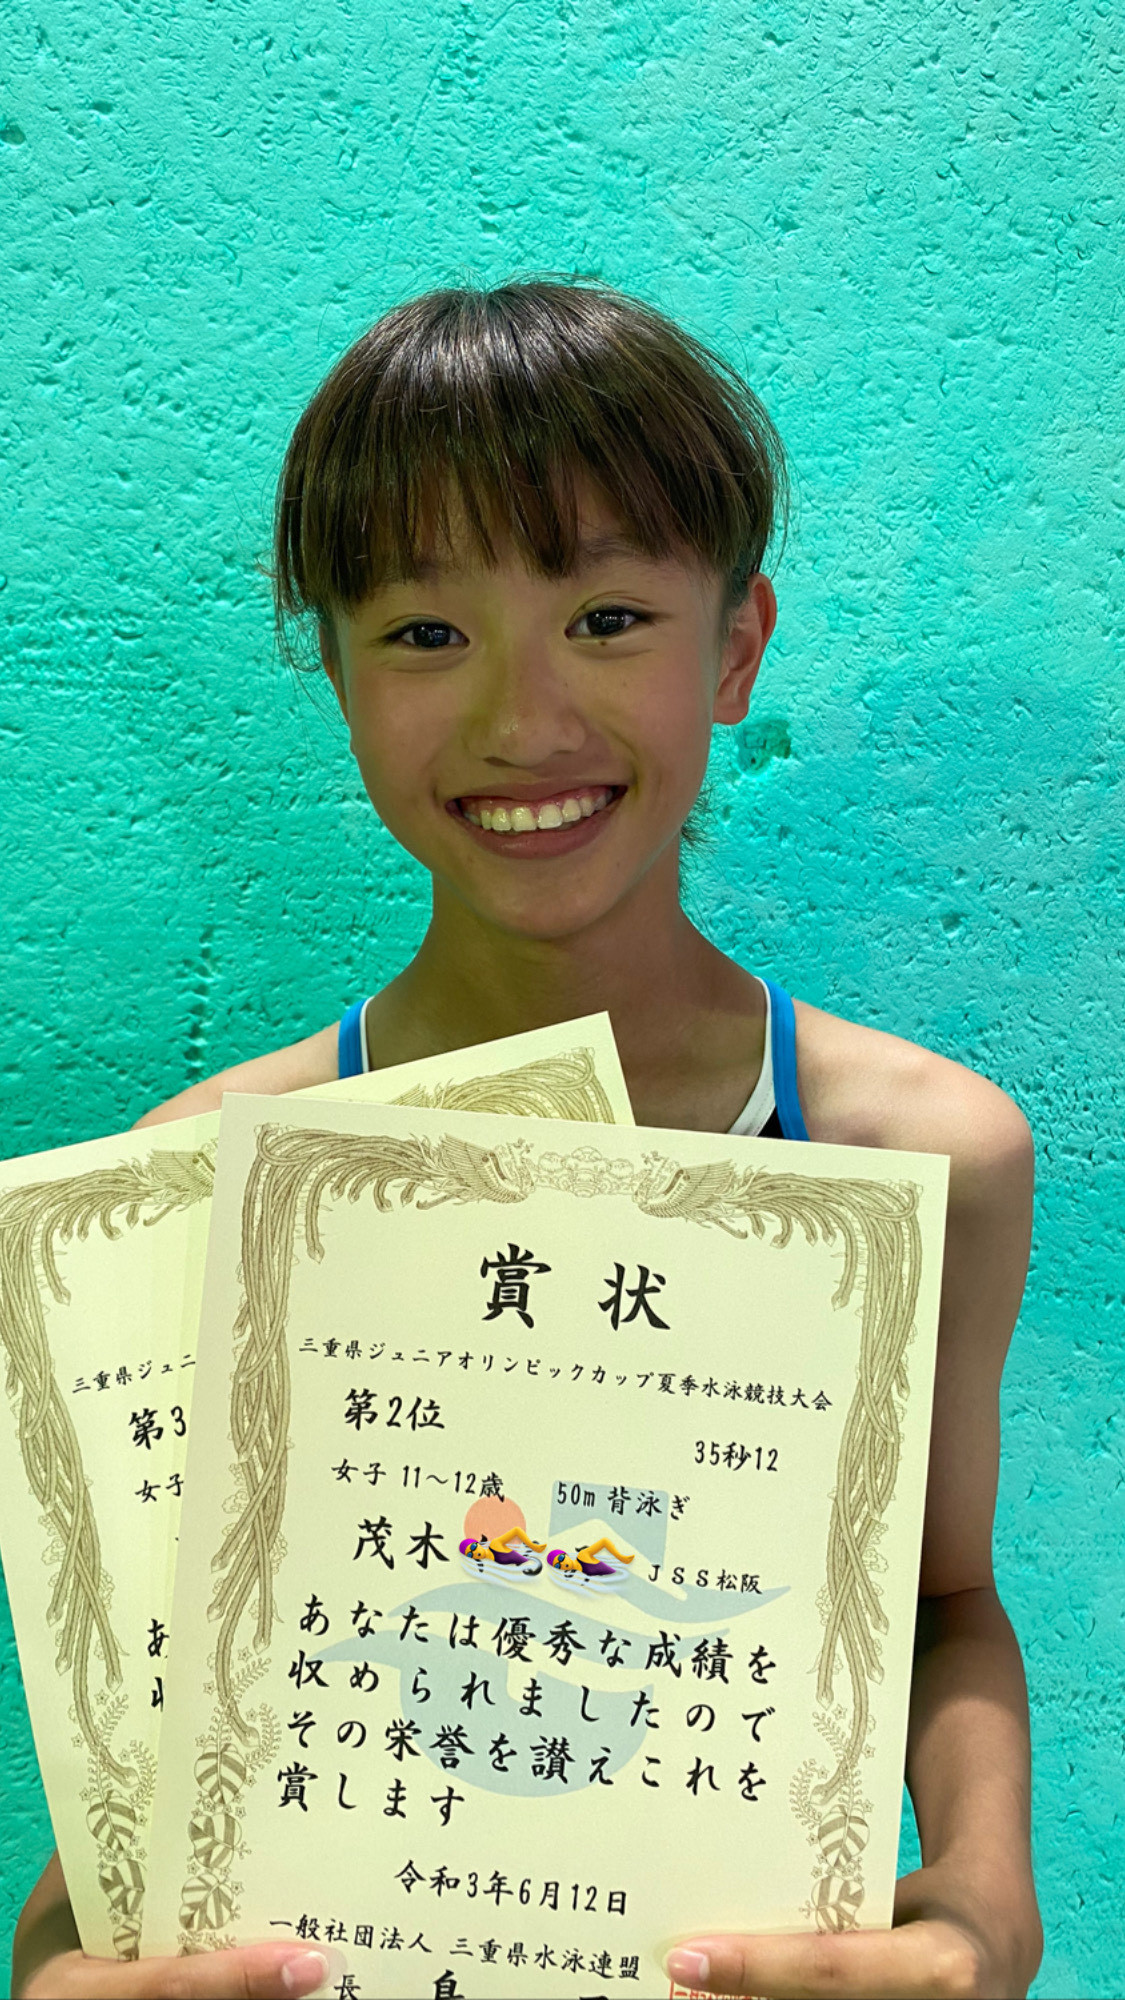 賞状
三重県ジュニアオリンピックカップ夏季水泳競技大会
第2位
35秒12
女子 11〜12歳 50m 背泳ぎ
茂木
JSS松阪
あなたは優秀な成績を
収められましたので
その栄誉を讃えこれを
賞します
令和3年6月12日
一般社団法人 三重県水泳連盟
長
三重県ジュニ
第3
女子